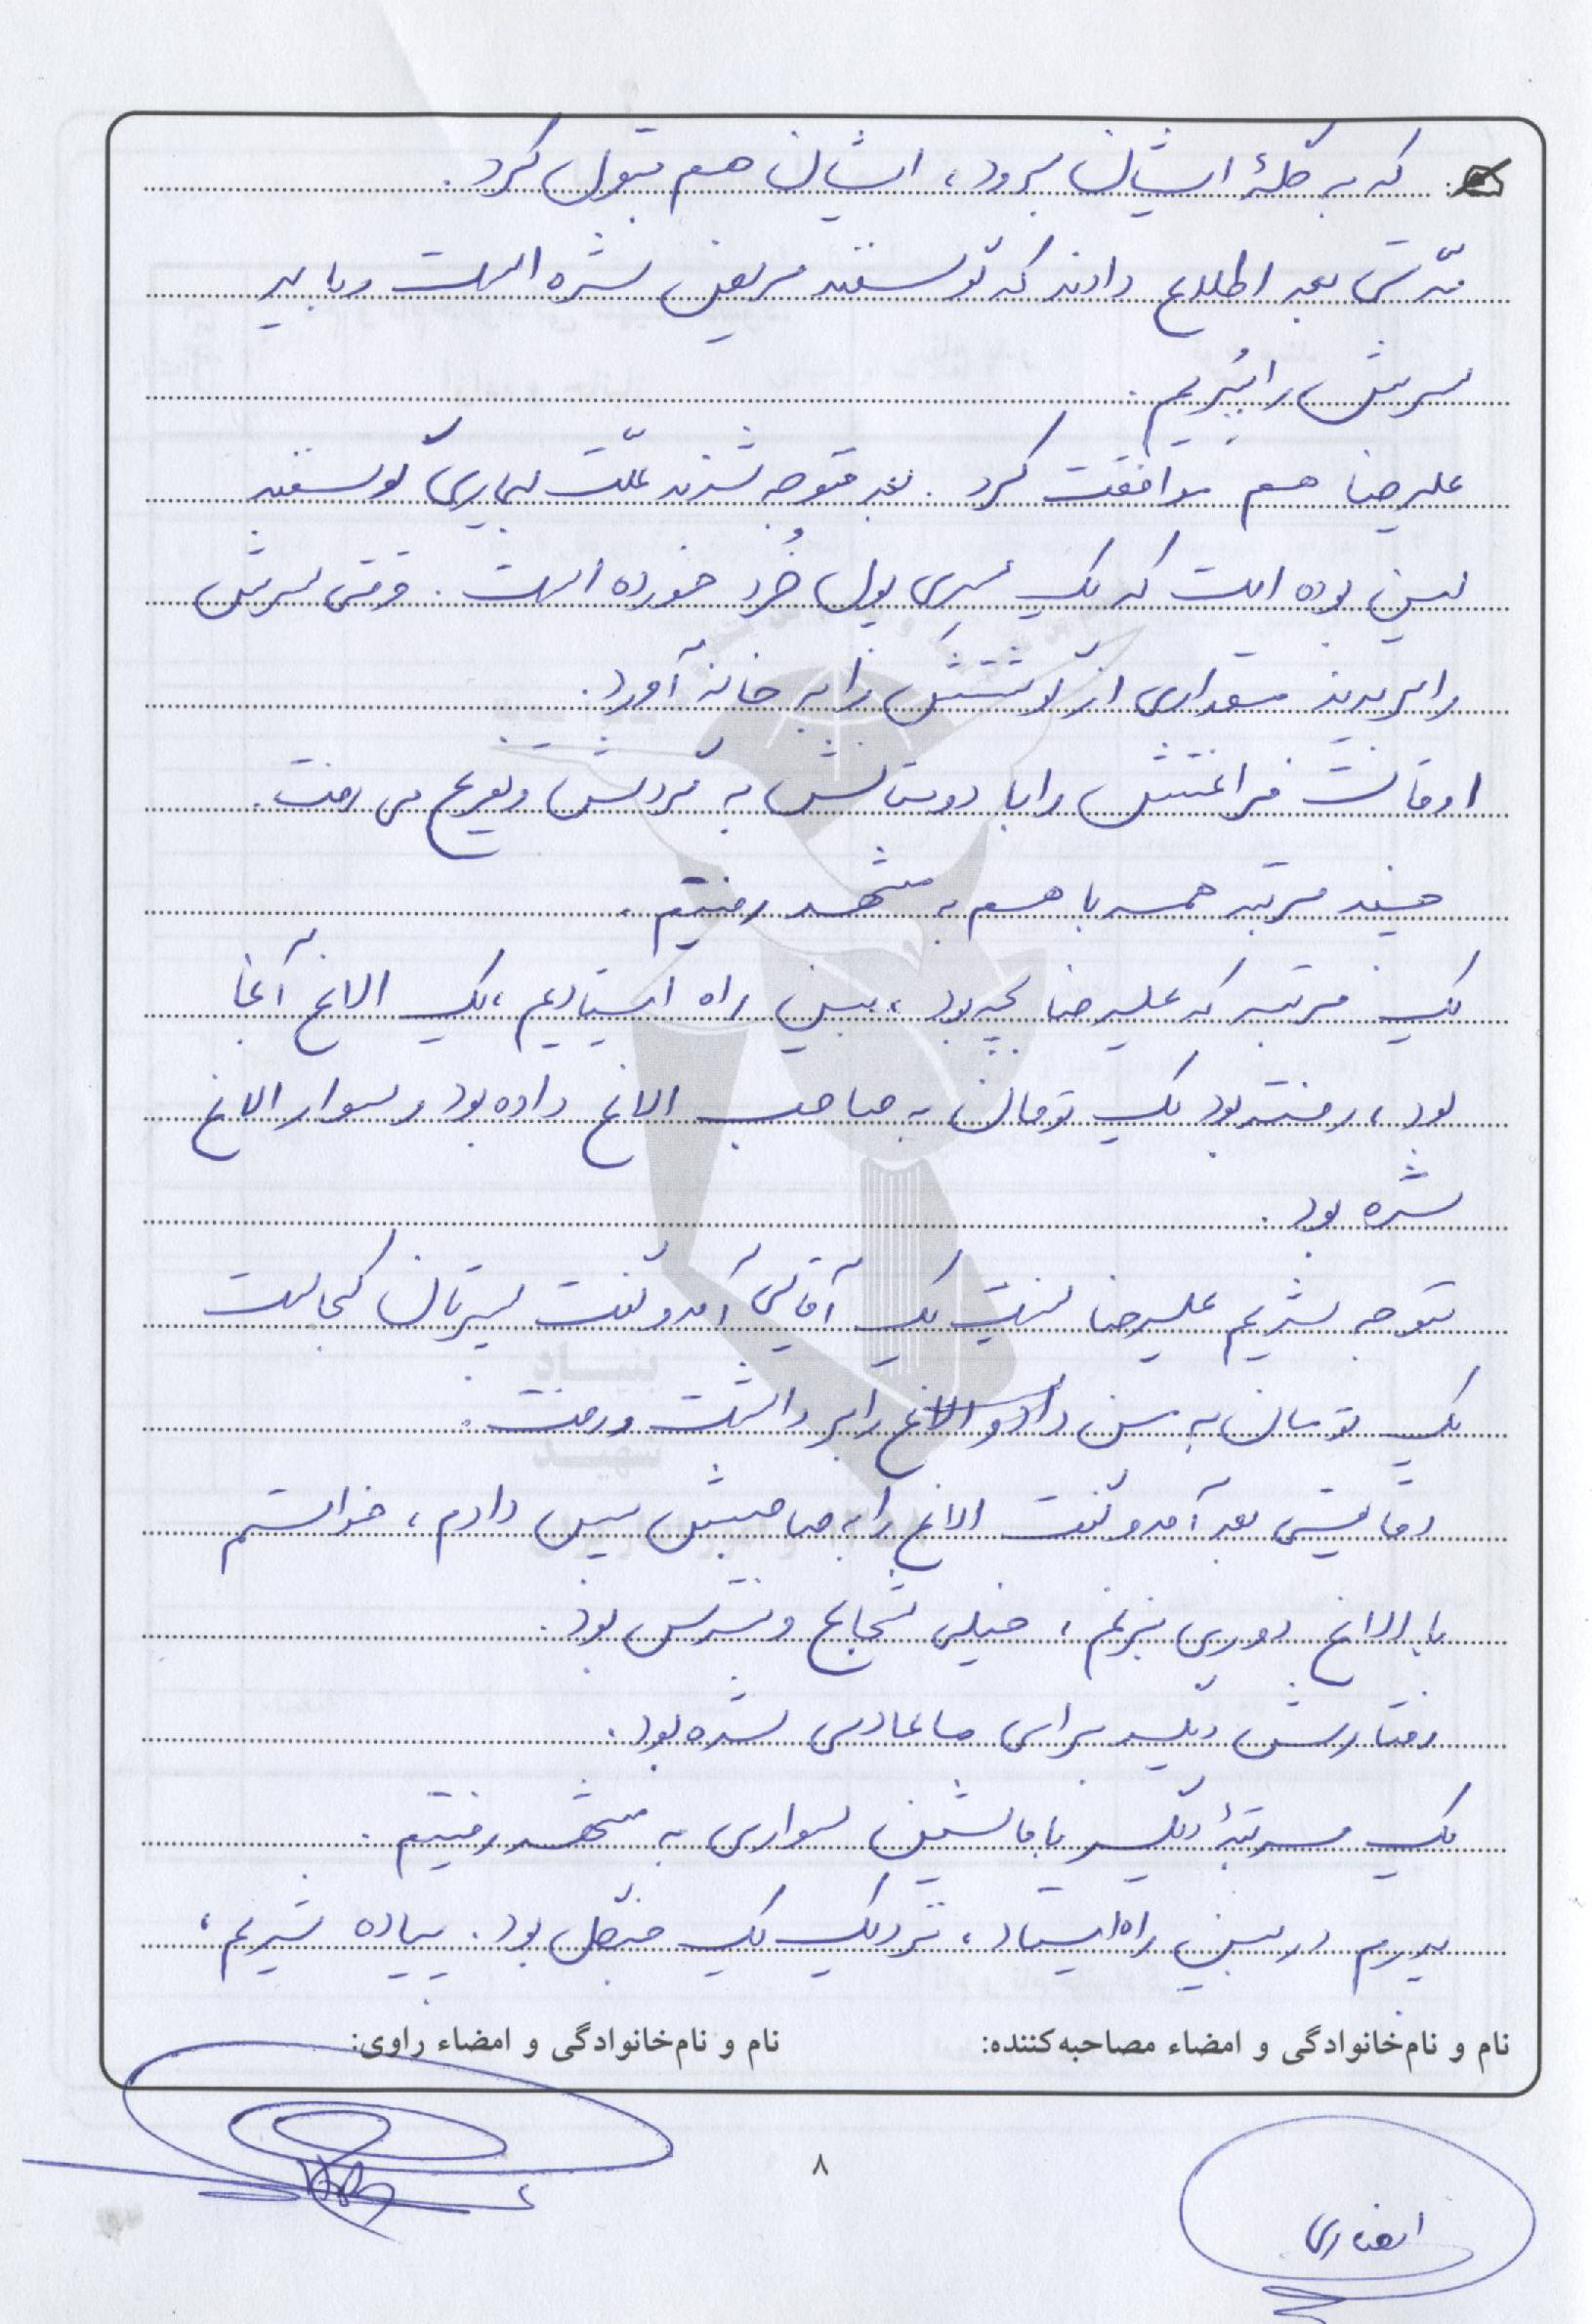 که به گلّهٔ ایشان برود، ایشان هم قبول کرد.
مدّتی بعد اطلاع دادند که گوسفند مریض شده است و باید
سرش را بِبُریم.
علیرضا هم موافقت کرد. بعد متوجه شدند علّت بیماری گوسفند
این بوده است که یک سری پول خُرد خورده است. وقتی سرش
را بریدند مقداری از گوشتش را به خانه آورد.
اوقات فراغتش را با دوستانش به گردش و تفریح می رفت.
چند مرتبه همه با هم به مشهد رفتیم.
یک مرتبه که علیرضا بچه بود، بین راه ایستادیم، یک الاغ آنجا
بود، رفته بود یک تومان به صاحب الاغ داده بود و سوار الاغ
شده بود.
متوجه شدیم علیرضا نیست یک آقائی آمد و گفت پسرتان کجاست
یک تومان به من داد و الاغ را برداشت و رفت.
دقایقی بعد آمد و گفت الاغ را به صاحبش پس دادم، خواستم
با الاغ دوری بزنم، خیلی شجاع و نترس بود.
رفتارش دیگر برای ما عادی شده بود.
یک مرتبهٔ دیگر با ماشین سواری به مشهد رفتیم.
پدرم در بین راه ایستاد، نزدیک یک جنگل بود. پیاده شدیم،
نام و نام‌خانوادگی و امضاء مصاحبه‌کننده: نام و نام‌خانوادگی و امضاء راوی:
۸
بنیاد
شهید